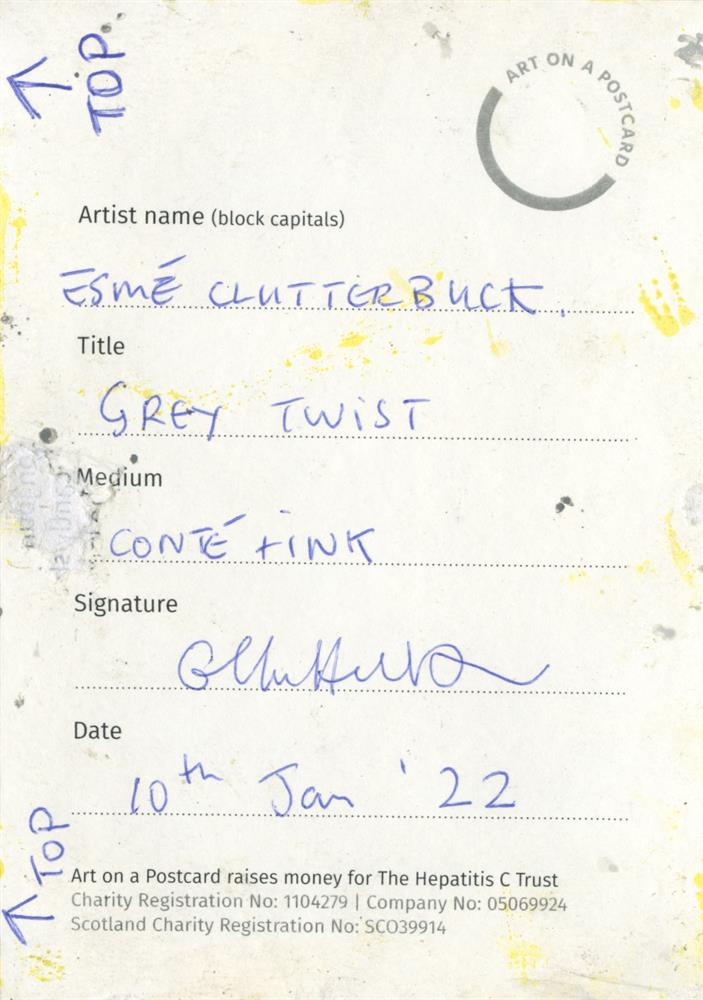 TOP
ART ON A POSTCARD
Artist name (block capitals)
ESMÉ CLUTTERBUCK.
Title
GREY TWIST
Medium
CONTÉ + INK
Signature
Date
10th Jan '22
TOP
Art on a Postcard raises money for The Hepatitis C Trust
Charity Registration No: 1104279 | Company No: 05069924
Scotland Charity Registration No: SCO39914